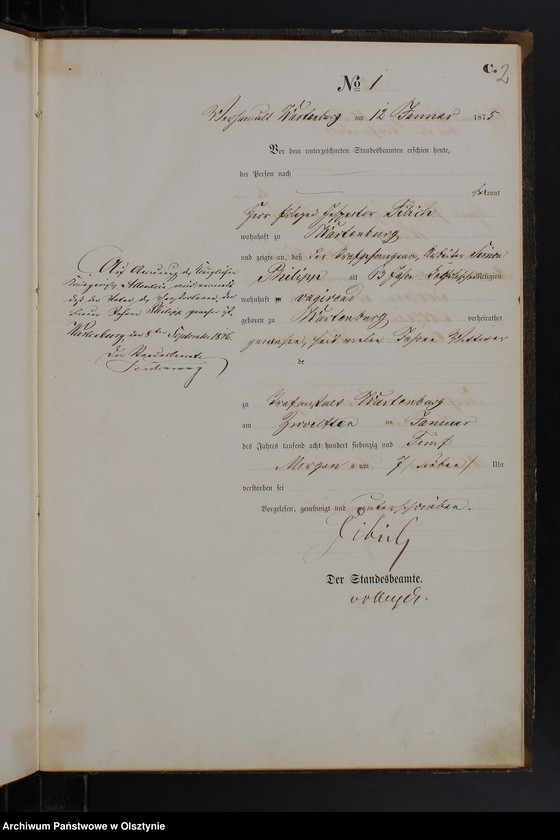 C. 2
No 1
Wartenburg am 12 Januar 1875
Vor dem unterzeichneten Standesbeamten erschien heute,
der Person nach
kannt
Herr Inspector
wohnhaft zu Wartenburg
und zeigte an, daß der Strafgefangene, Arbeiter Simon
Philipp alt 13 Jahre katholischer Religion
wohnhaft vagirend
geboren zu Wartenburg verheirathet
gewesen, seit vielen Jahren Wittwer
de
zu Strafanstalt Wartenburg
am zwoelften Januar
des Jahres tausend acht hundert siebenzig und fünf
Morgen um 7 /sieben/ Uhr
verstorben sei
Vorgelesen, genehmigt und unterschrieben.
Der Standesbeamte.
Auf Anweisung des Königlichen
Allenstein wird vermerkt
daß der Vater des Verstorbenen, der
Johann Philipp gewesen ist.
Wartenburg, den 8ten September 1876.
Der Standesbeamte
Archiwum Państwowe w Olsztynie